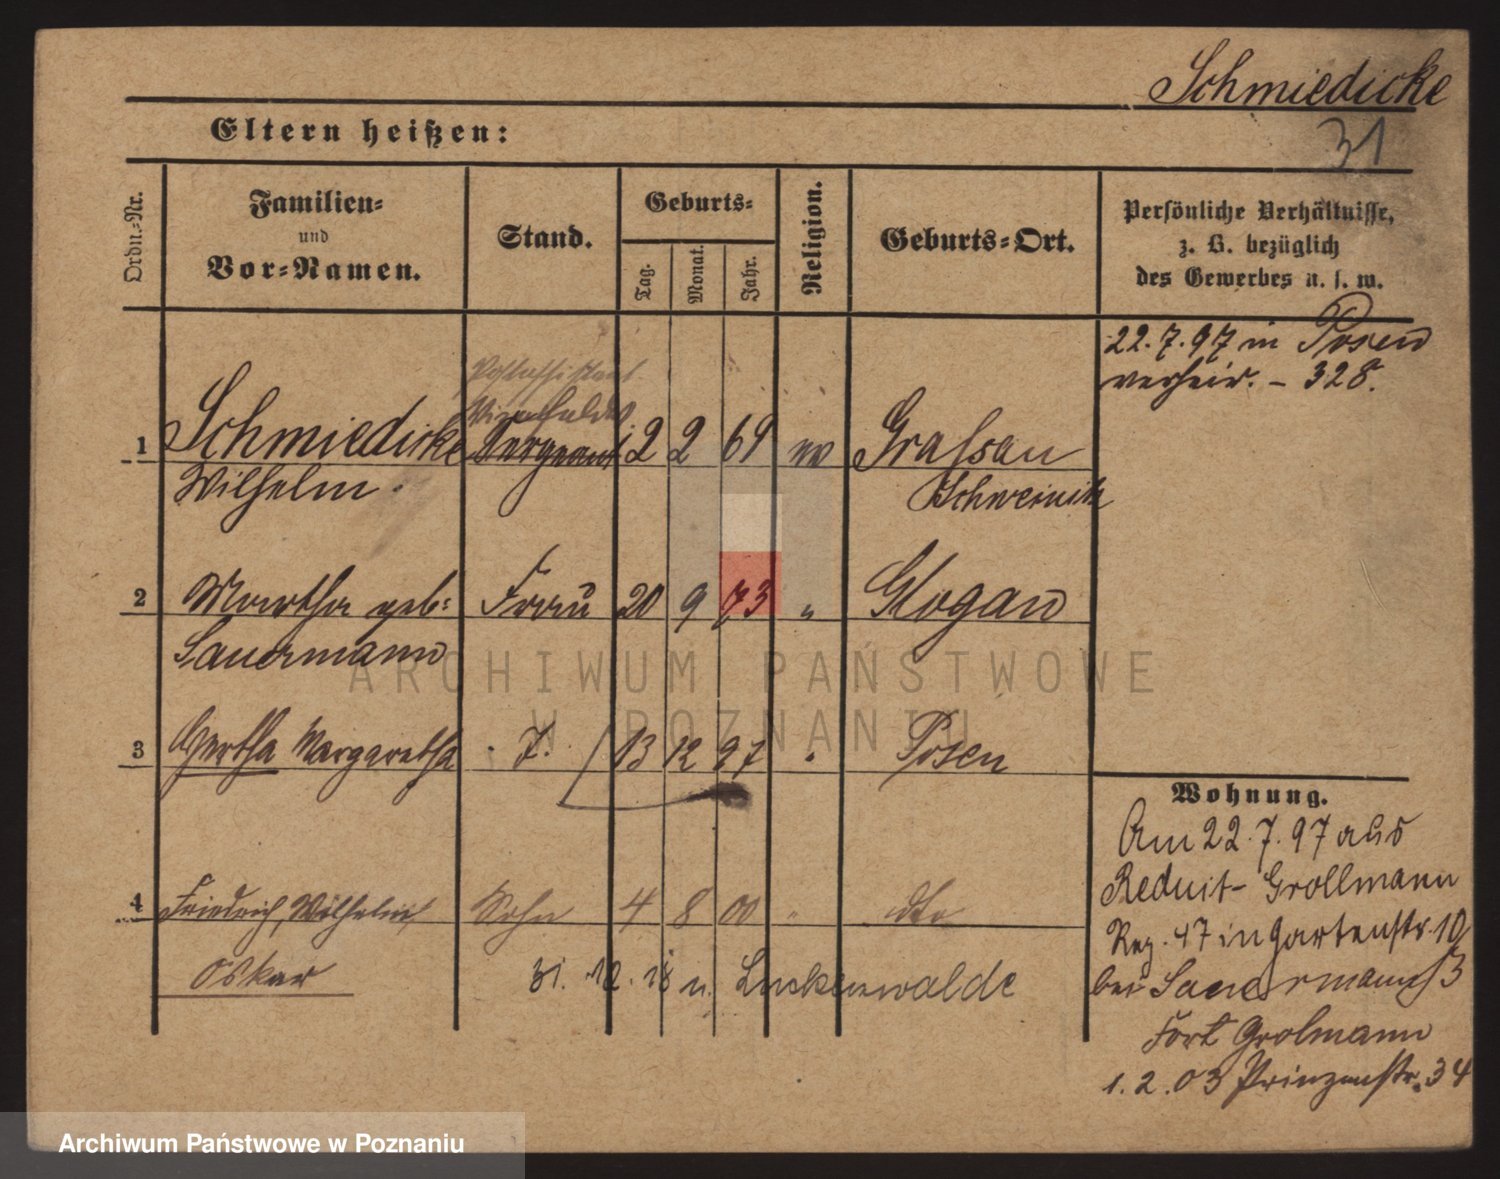 Schmiedicke
31
Eltern heißen:
Ordn.-Nr.
Familien-
und
Vor-Namen.
Stand.
Geburts-
Tag.
Monat.
Jahr.
Religion.
Geburts-Ort.
Persönliche Verhältnisse,
z. B. bezüglich
des Gewerbes u. s. w.
22.7.97 in Posen
verheir. – 328.
Postassistent
Vizefeldw.
1 Schmiedicke Sergeant 12 2 69 ev Grassau
Wilhelm. Schweinitz
2 Martha geb: Frau 20 9 73 " Glogau
Sauermann
3 Hertha Margaretha T. 13 12 97 " Posen
4 Friedrich, Wilhelm Sohn 4 8 00 " dto
Oskar
31. 12. 18 n. Luckenwalde
Wohnung.
Am 22.7.97 aus
Reduit- Grollmann
Reg. 47 in Gartenstr. 10
bei Sauermann
Fort Grolmann
1.2.03 Prinzenstr. 34
ARCHIWUM PAŃSTWOWE
W POZNANIU
Archiwum Państwowe w Poznaniu